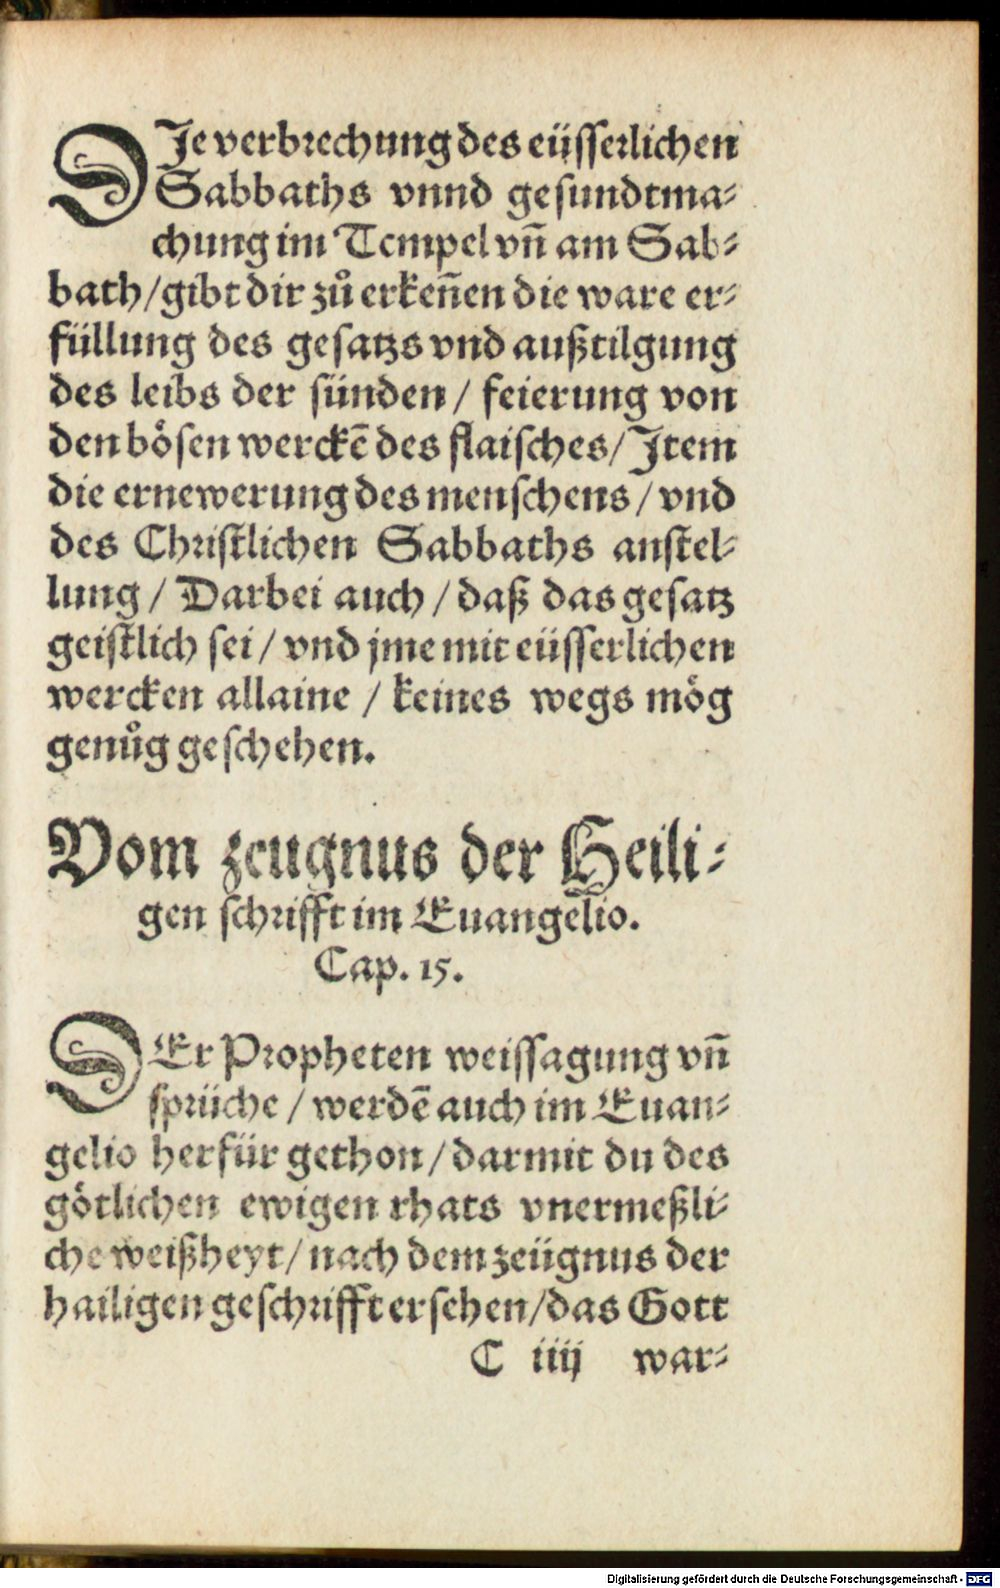 DIe verbrechung des eüsserlichen
Sabbaths vnnd gesundtma⸗
chung im Tempel vn̄ am Sab⸗
bath/gibt dir zů erken̄en die ware er⸗
füllung des gesatzs vnd außtilgung
des leibs der sünden / feierung von
den bösen werckē des flaisches/Item
die ernewerung des menschens / vnd
des Christlichen Sabbaths anstel⸗
lung / Darbei auch / daß das gesatz
geistlich sei / vnd jme mit eüsserlichen
wercken allaine / keines wegs mög
genůg geschehen.
Vom zeugnus der Heili⸗
gen schrifft im Euangelio.
Cap. 15.
DEr Propheten weissagung vn̄
sprüche / werdē auch im Euan⸗
gelio herfür gethon / darmit du des
götlichen ewigen rhats vnermeßli⸗
che weißheyt/ nach dem zeügnus der
hailigen geschrifft ersehen/das Gott
C iiij war⸗
Digitalisierung gefördert durch die Deutsche Forschungsgemeinschaft - DFG